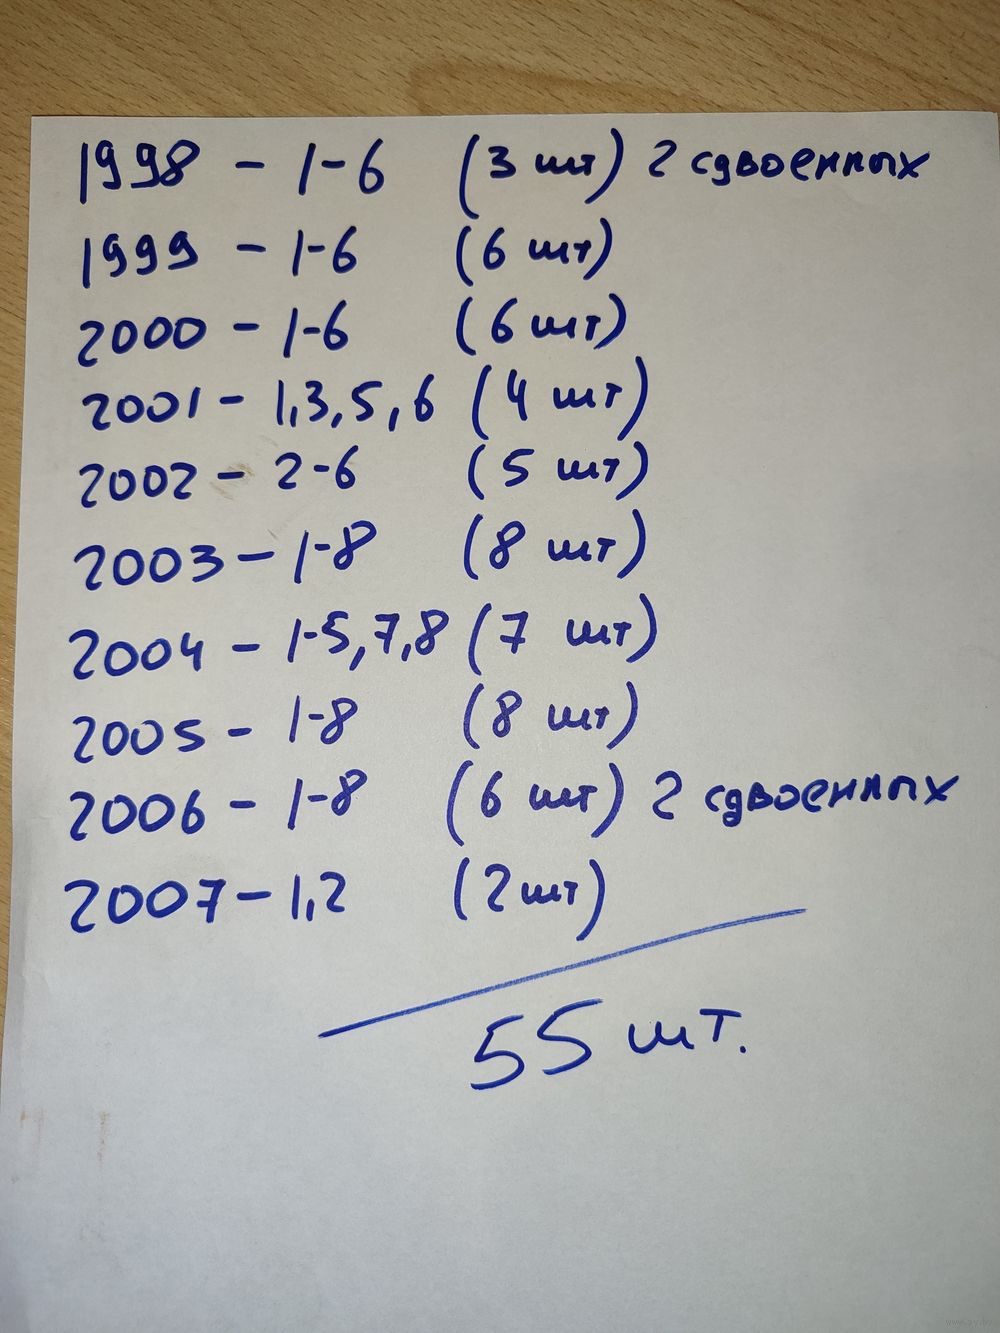 1998 - 1-6 (3 шт) 2 сдвоенных
1999 - 1-6 (6 шт)
2000 - 1-6 (6 шт)
2001 - 1,3,5,6 (4 шт)
2002 - 2-6 (5 шт)
2003 - 1-8 (8 шт)
2004 - 1-5,7,8 (7 шт)
2005 - 1-8 (8 шт)
2006 - 1-8 (6 шт) 2 сдвоенных
2007 - 1,2 (2 шт)
55 шт.